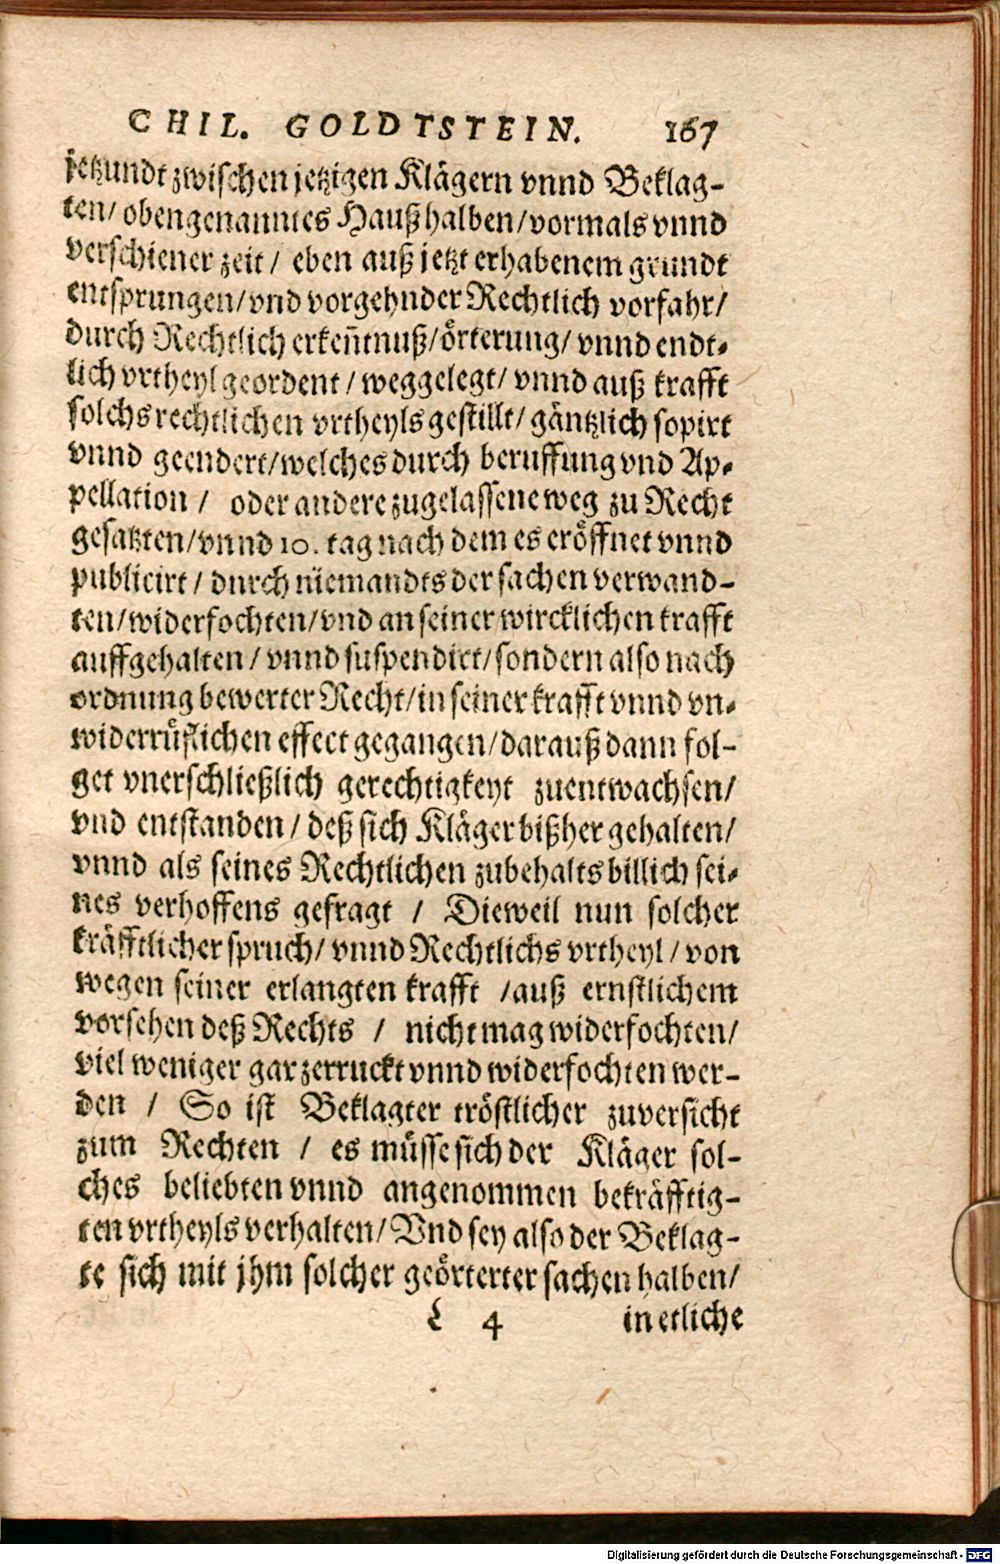 CHIL. GOLDTSTEIN. 167
jetzundt zwischen jetzigen Klägern vnnd Beklag-
ten/ obengenanntes Hauß halben/ vormals vnnd
verschiener zeit/ eben auß jetzt erhabenem grundt
entsprungen/ vnd vorgehnder Rechtlich vorfahr/
durch Rechtlich erkeñtnuß/ örterung/ vnnd endt-
lich vrtheyl geordent/ weggelegt/ vnnd auß krafft
solchs rechtlichen vrtheyls gestillt/ gäntzlich sopirt
vnnd geendert/ welches durch beruffung vnd Ap-
pellation / oder andere zugelassene weg zu Recht
gesatzten/ vnnd 10. tag nach dem es eröffnet vnnd
publicirt / durch niemandts der sachen verwand-
ten/ widerfochten/ vnd an seiner wircklichen krafft
auffgehalten / vnnd suspendirt/ sondern also nach
ordnung bewerter Recht/ in seiner krafft vnnd vn-
widerrüflichen effect gegangen/ darauß dann fol-
get vnerschließlich gerechtigkeyt zuentwachsen/
vnd entstanden / deß sich Kläger bißher gehalten/
vnnd als seines Rechtlichen zubehalts billich sei-
nes verhoffens gefragt / Dieweil nun solcher
kräfftlicher spruch/ vnnd Rechtlichs vrtheyl / von
wegen seiner erlangten krafft / auß ernstlichem
vorsehen deß Rechts / nicht mag widerfochten/
viel weniger gar zerruckt vnnd widerfochten wer-
den / So ist Beklagter tröstlicher zuversicht
zum Rechten / es müsse sich der Kläger sol-
ches beliebten vnnd angenommen bekräfftig-
ten vrtheyls verhalten/ Vnd sey also der Beklag-
te sich mit jhm solcher geörterter sachen halben/
L 4 in etliche
Digitalisierung gefördert durch die Deutsche Forschungsgemeinschaft - DFG